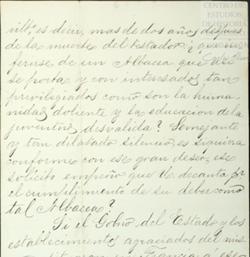 CENTRO DE
ESTUDIOS
DE HISTORIA
es decir, mas de dos años despues
de la muerte del testador ¿
ferirse de un Albacea que
se porta y con interesados tan
privilegiados como son la huma
nidad doliente y la educacion de la
juventud desvalida? Semejante
y tan dilatado silencio, es siquiera
conforme con ese gran deseo, ese
solícito empeño que U. decanta por
el cumplimiento de su deber como
tal Albacea?
Si el Gobno. del Estado y los
establecimientos agraciados del mis